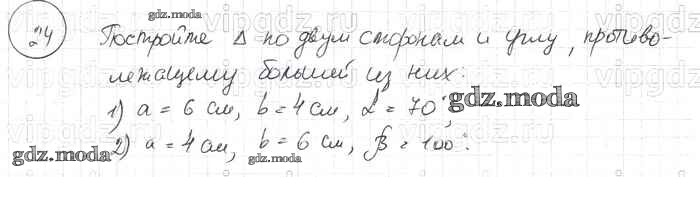 24
gdz.moda
Постройте Δ по двум сторонам и углу, противо-
лежащему большей из них:
1) a = 6 см, b = 4 см, α = 70°;
gdz.moda
2) a = 4 см, b = 6 см, β = 100°.
gdz.moda
gdz.moda
vipgdz